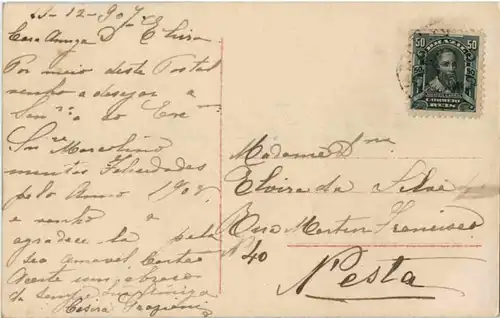 23-12-907
Cara Amiga D. Elvira
Por meio deste Postal
venho a desejar a
Senra e ao Exmo
Snr Marcolino
mentos Felicidades
pelo Anno 1908
e venho a
agradecela pela
sea amavel cartão
Aceite um abraço
da sempre amiga
BRAZIL
50 50
CORREIO
REIS
Madame Dna
Elvira da Silva
Rua Martim Francisco
N 40
Nesta